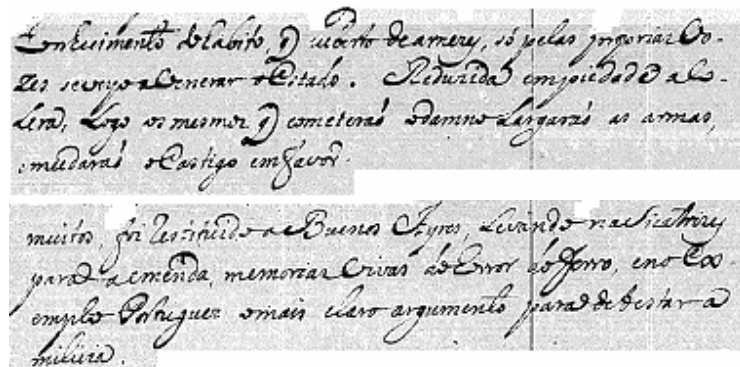 conhecimento do habito, q̃ uberto de arnezes, só pelas proprias vo-
zes se veyo a venerar o Estado. Reduzida em piedade a co-
lera, logo os mesmos q̃ cometerаõ o damno largaraõ as armas,
e mudaraõ o Castigo em favor.
muitos, foi restituido a Buenos Ayres, Levando nas Sicatrizes
para a emenda, memorias vivas do Error do ferro, e no Ex-
emplo Portuguez o mais claro argumento para detestar a
milicia.